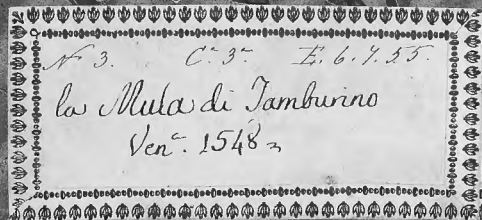 Nº 3. Cª 3ª E. 6. 7. 55.
la Mula di Tamburino
Venª. 1548